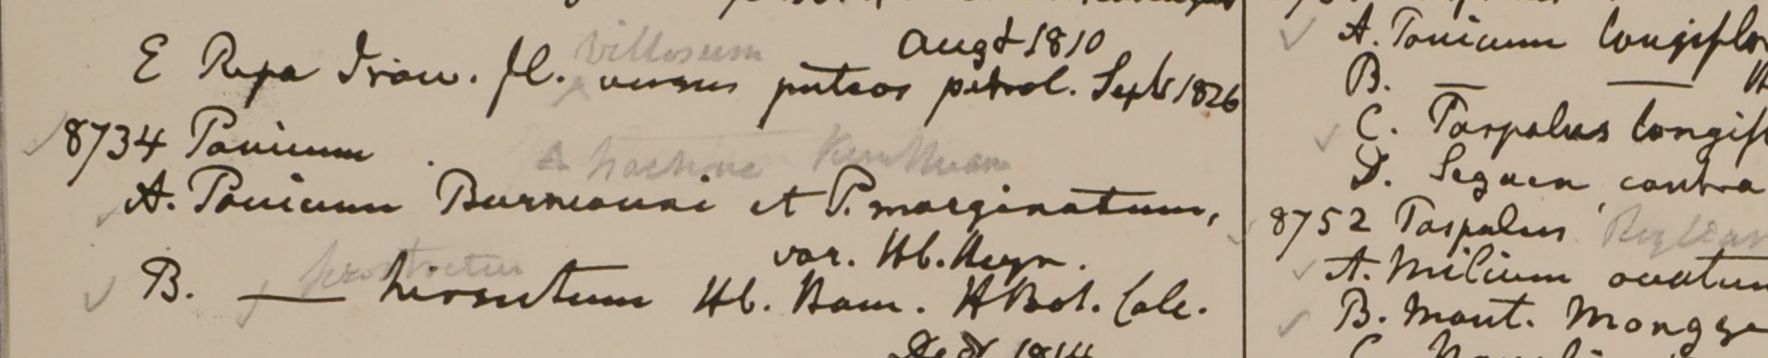 Augt 1810
E Ripa Iraw. fl. villosum versus puteos petrol. Septr 1826
8734 Panicum
A. Panicum Burmanni et P. marginatum,
var. Hb. Heyn.
prostratum
B. — hirsutum Hb. Ham. H Bot. Calc.
Decr 1814
A. Panicum longiflo
B. — —
C. Paspalus longifl
D. Segaen contra
8752 Paspalus
A. Milium ovatum
B. Mont.